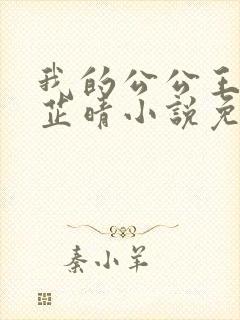 我的公公王
芷晴小說免
秦小羊